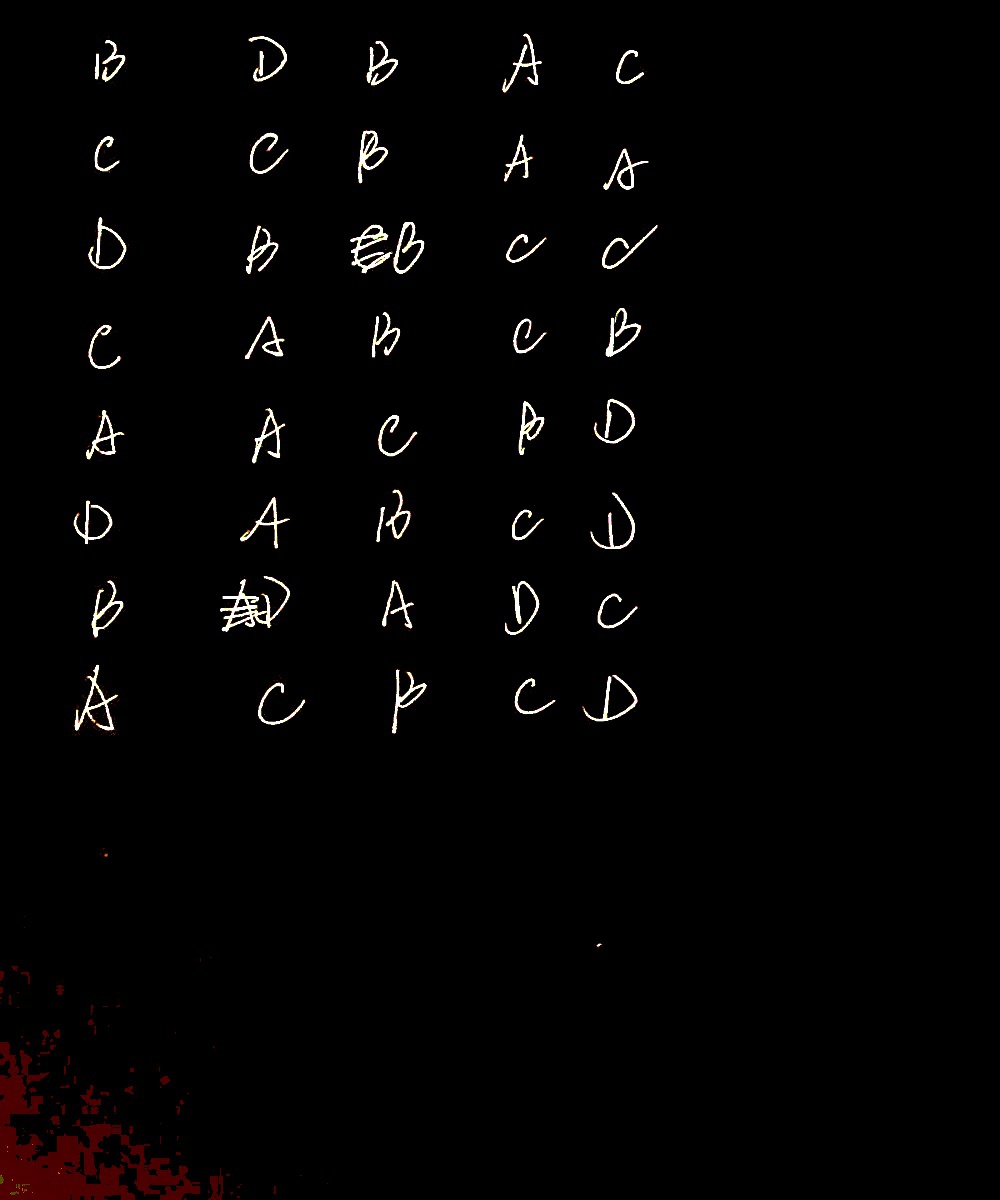 B D B A C
C C B A A
D B B C C
C A B C B
A A C B D
D A B C D
B D A D C
A C B C D